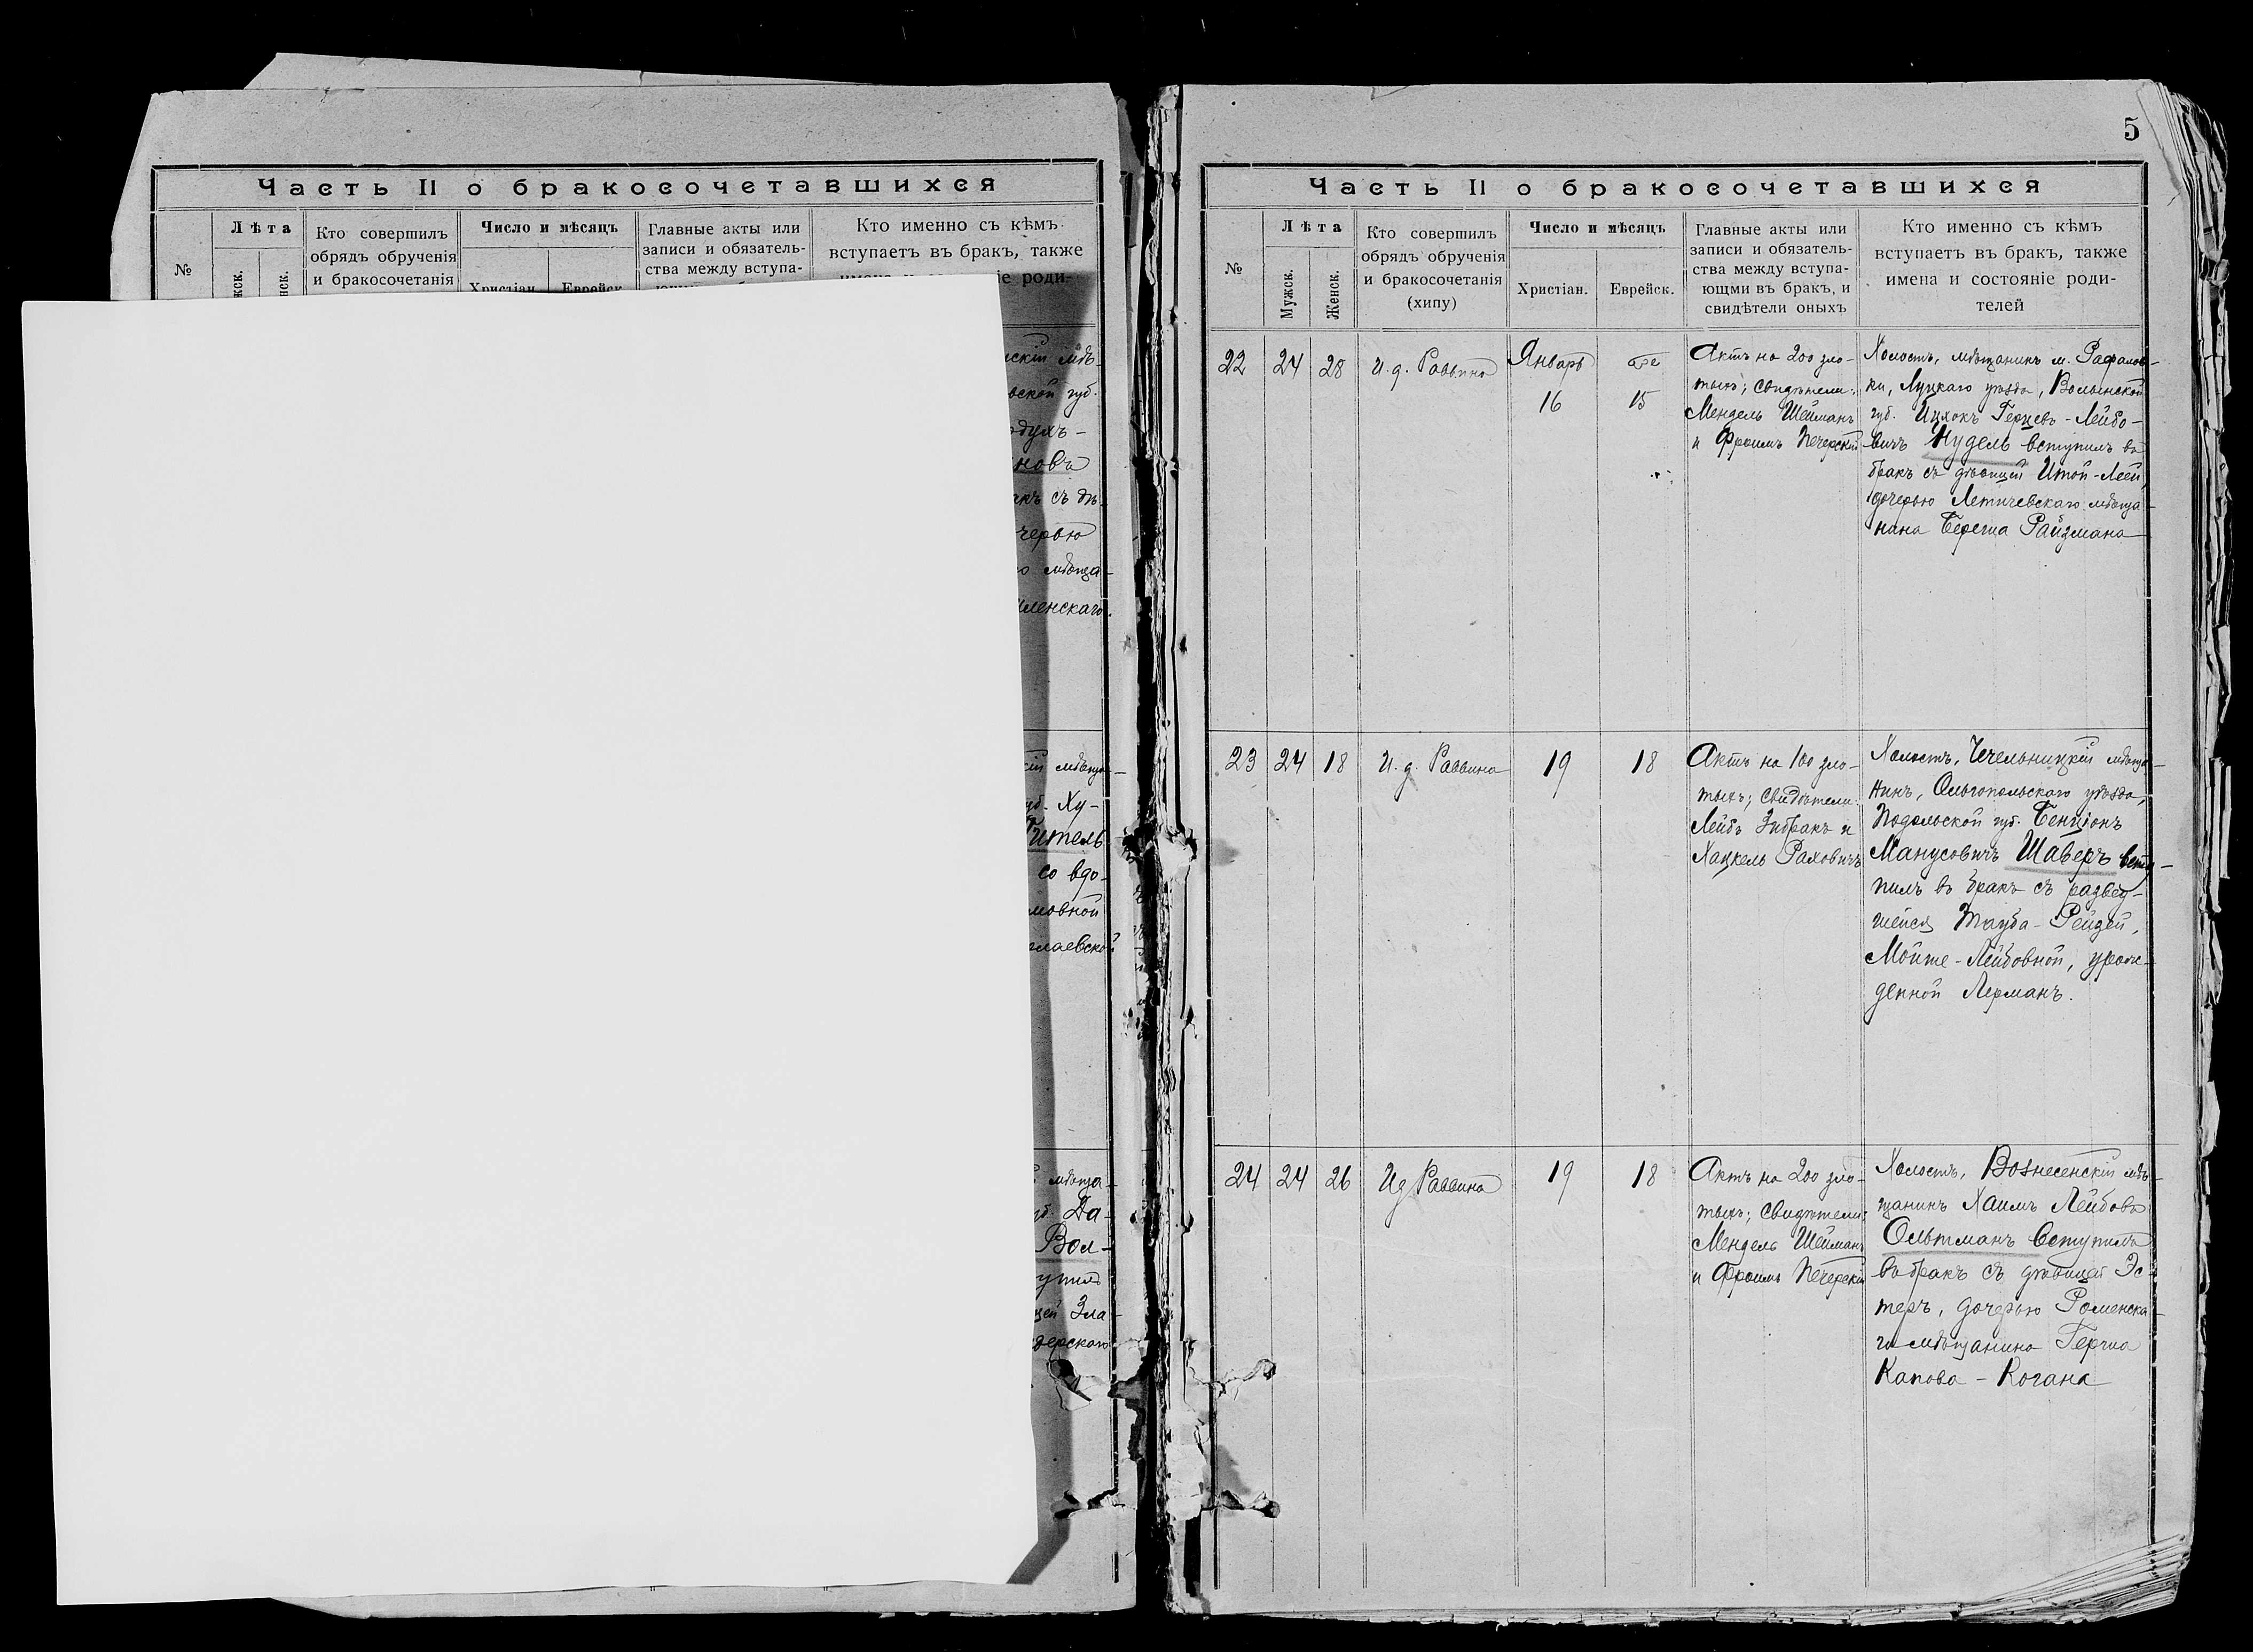 Часть II о бракосочетавшихся
№
Лѣта
Кто совершилъ
обрядъ обрученія
и бракосочетанія
Число и мѣсяцъ
Христіан.
Еврейск.
Главные акты или
записи и обязатель-
ства между вступа-
Кто именно съ кѣмъ
вступаетъ въ бракъ, также
іе роди-
скій мѣ-
вской губ.
одухъ-
новъ
акъ съ дѣ-
черью
о мѣща-
иленскаго.
кій мѣща-
уб. Ху-
Гитель
со вдо-
мовной
лаевской
мѣща-
уб. Да-
Вол-
упилъ
цей Зла-
дерскаго
5
Часть II о бракосочетавшихся
№
Лѣта
Мужск.
Женск.
Кто совершилъ
обрядъ обрученія
и бракосочетанія
(хипу)
Число и мѣсяцъ
Христіан.
Еврейск.
Главные акты или
записи и обязатель-
ства между вступа-
ющми въ бракъ, и
свидѣтели оныхъ
Кто именно съ кѣмъ
вступаетъ въ бракъ, также
имена и состояніе роди-
телей
22
24
28
И. д. Раввина
Январь
16
15
Актъ на 200 зло-
тыхъ; свидѣтели:
Мендель Шейманъ
и Фроимъ Печерскій
Холостъ, мѣщанинъ м. Рафалов-
ки, Луцкаго уѣзда, Волынской
губ. Ицхокъ Герцевъ-Лейбо-
вичъ Нудель вступилъ въ
бракъ съ дѣвицей Итой-Леей,
дочерью Летичевскаго мѣща-
нина Береша Райзмана
23
24
18
И. д. Раввина
19
18
Актъ на 100 зло-
тыхъ; свидѣтели:
Лейбъ Зибракъ и
Хацкель Раховичъ
Холостъ, Чечельницкій мѣща-
нинъ, Ольгопольскаго уѣзда,
Подольской губ. Бенціонъ
Манусовичъ Шаверъ всту-
пилъ въ бракъ съ развед-
шейся Тауба-Рейзей,
Мойше-Лейбовной, урож-
денной Лерманъ.
24
24
26
И д Раввина
19
18
Актъ на 200 зло-
тыхъ; свидѣтели:
Мендель Шейманъ
и Фроимъ Печерскій
Холостъ, Вознесенскій мѣ-
щанинъ Хаимъ Лейбовъ
Ольтманъ вступилъ
въ бракъ съ дѣвицей Эс-
теръ, дочерью Роменска-
го мѣщанина Герша
Капова-Когана